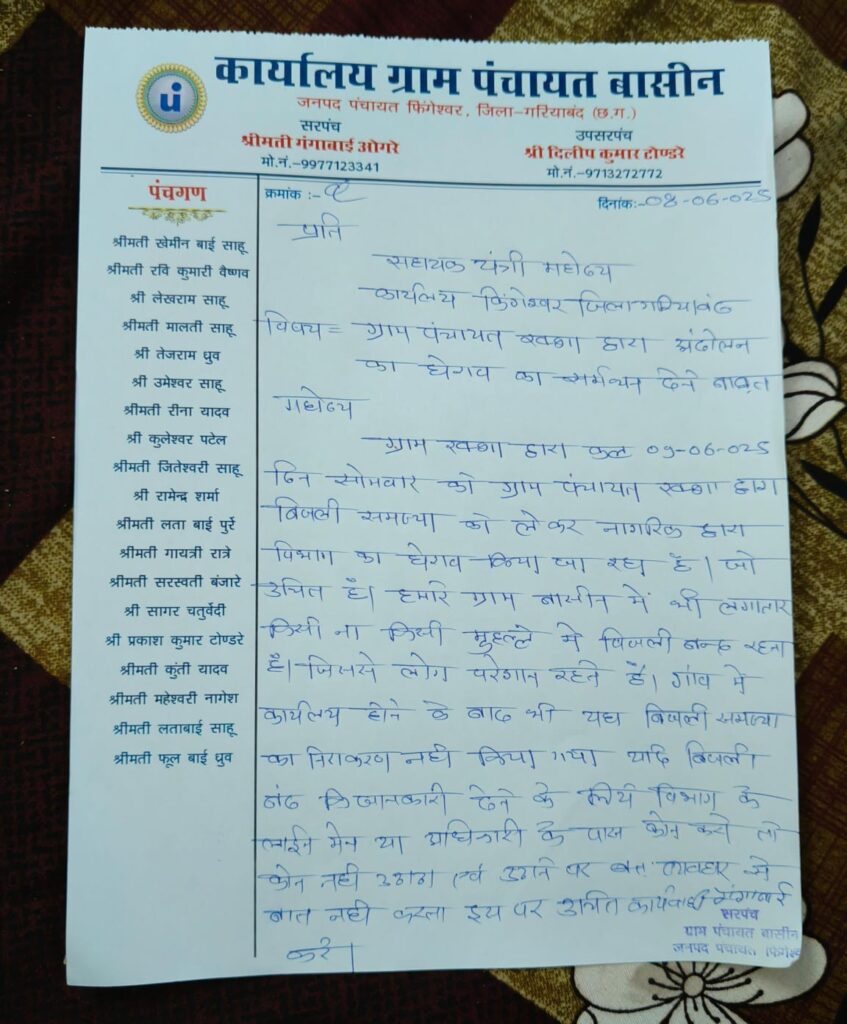 कार्यालय ग्राम पंचायत बासीन
जनपद पंचायत फिंगेश्वर, जिला-गरियाबंद (छ.ग.)
सरपंच
श्रीमती गंगाबाई ओगरे
मो.नं.-9977123341
उपसरपंच
श्री दिलीप कुमार टोण्डरे
मो.नं.-9713272772
पंचगण
श्रीमती खेमीन बाई साहू
श्रीमती रवि कुमारी वैष्णव
श्री लेखराम साहू
श्रीमती मालती साहू
श्री तेजराम ध्रुव
श्री उमेश्वर साहू
श्रीमती रीना यादव
श्री कुलेश्वर पटेल
श्रीमती जितेश्वरी साहू
श्री रामेन्द्र शर्मा
श्रीमती लता बाई पुर्रे
श्रीमती गायत्री रात्रे
श्रीमती सरस्वती बंजारे
श्री सागर चतुर्वेदी
श्री प्रकाश कुमार टोण्डरे
श्रीमती कुंती यादव
श्रीमती महेश्वरी नागेश
श्रीमती लताबाई साहू
श्रीमती फूल बाई ध्रुव
क्रमांक :-
दिनांक:-08-06-025
प्रति
सहायक यंत्री महोदय
कार्यलय फिंगेश्वर जिला गरियाबंद
विषय = ग्राम पंचायत द्वारा आंदोलन
का घेराव का समर्थन देने बाबत
महोदय
ग्राम द्वारा कल 09-06-025
दिन सोमवार को ग्राम पंचायत द्वारा
बिजली समस्या को लेकर नागरिक द्वारा
विभाग का घेराव किया जा रहा है। जो
उचित है। हमारे ग्राम बासीन में भी लगातार
किसी ना किसी मुहल्ले मे बिजली बन्द रहना
है। जिससे लोग परेशान रहते है। गांव मे
कार्यलय होने के बाद भी यह बिजली समस्या
का निराकरण नही किया गया यदि बिजली
बंद कि जानकारी देने के लिये विभाग के
लाईन मेन या अधिकारी के पास फोन करो तो
फोन नही उठाता एवं उठाने पर व्यवहार से
बात नही करता इस पर उचित कार्यवाही
करे।
गंगाबाई
सरपंच
ग्राम पंचायत बासीन
जनपद पंचायत फिंगेश्व